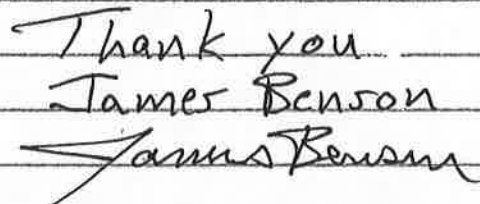 Thank you
James Benson
James Benson